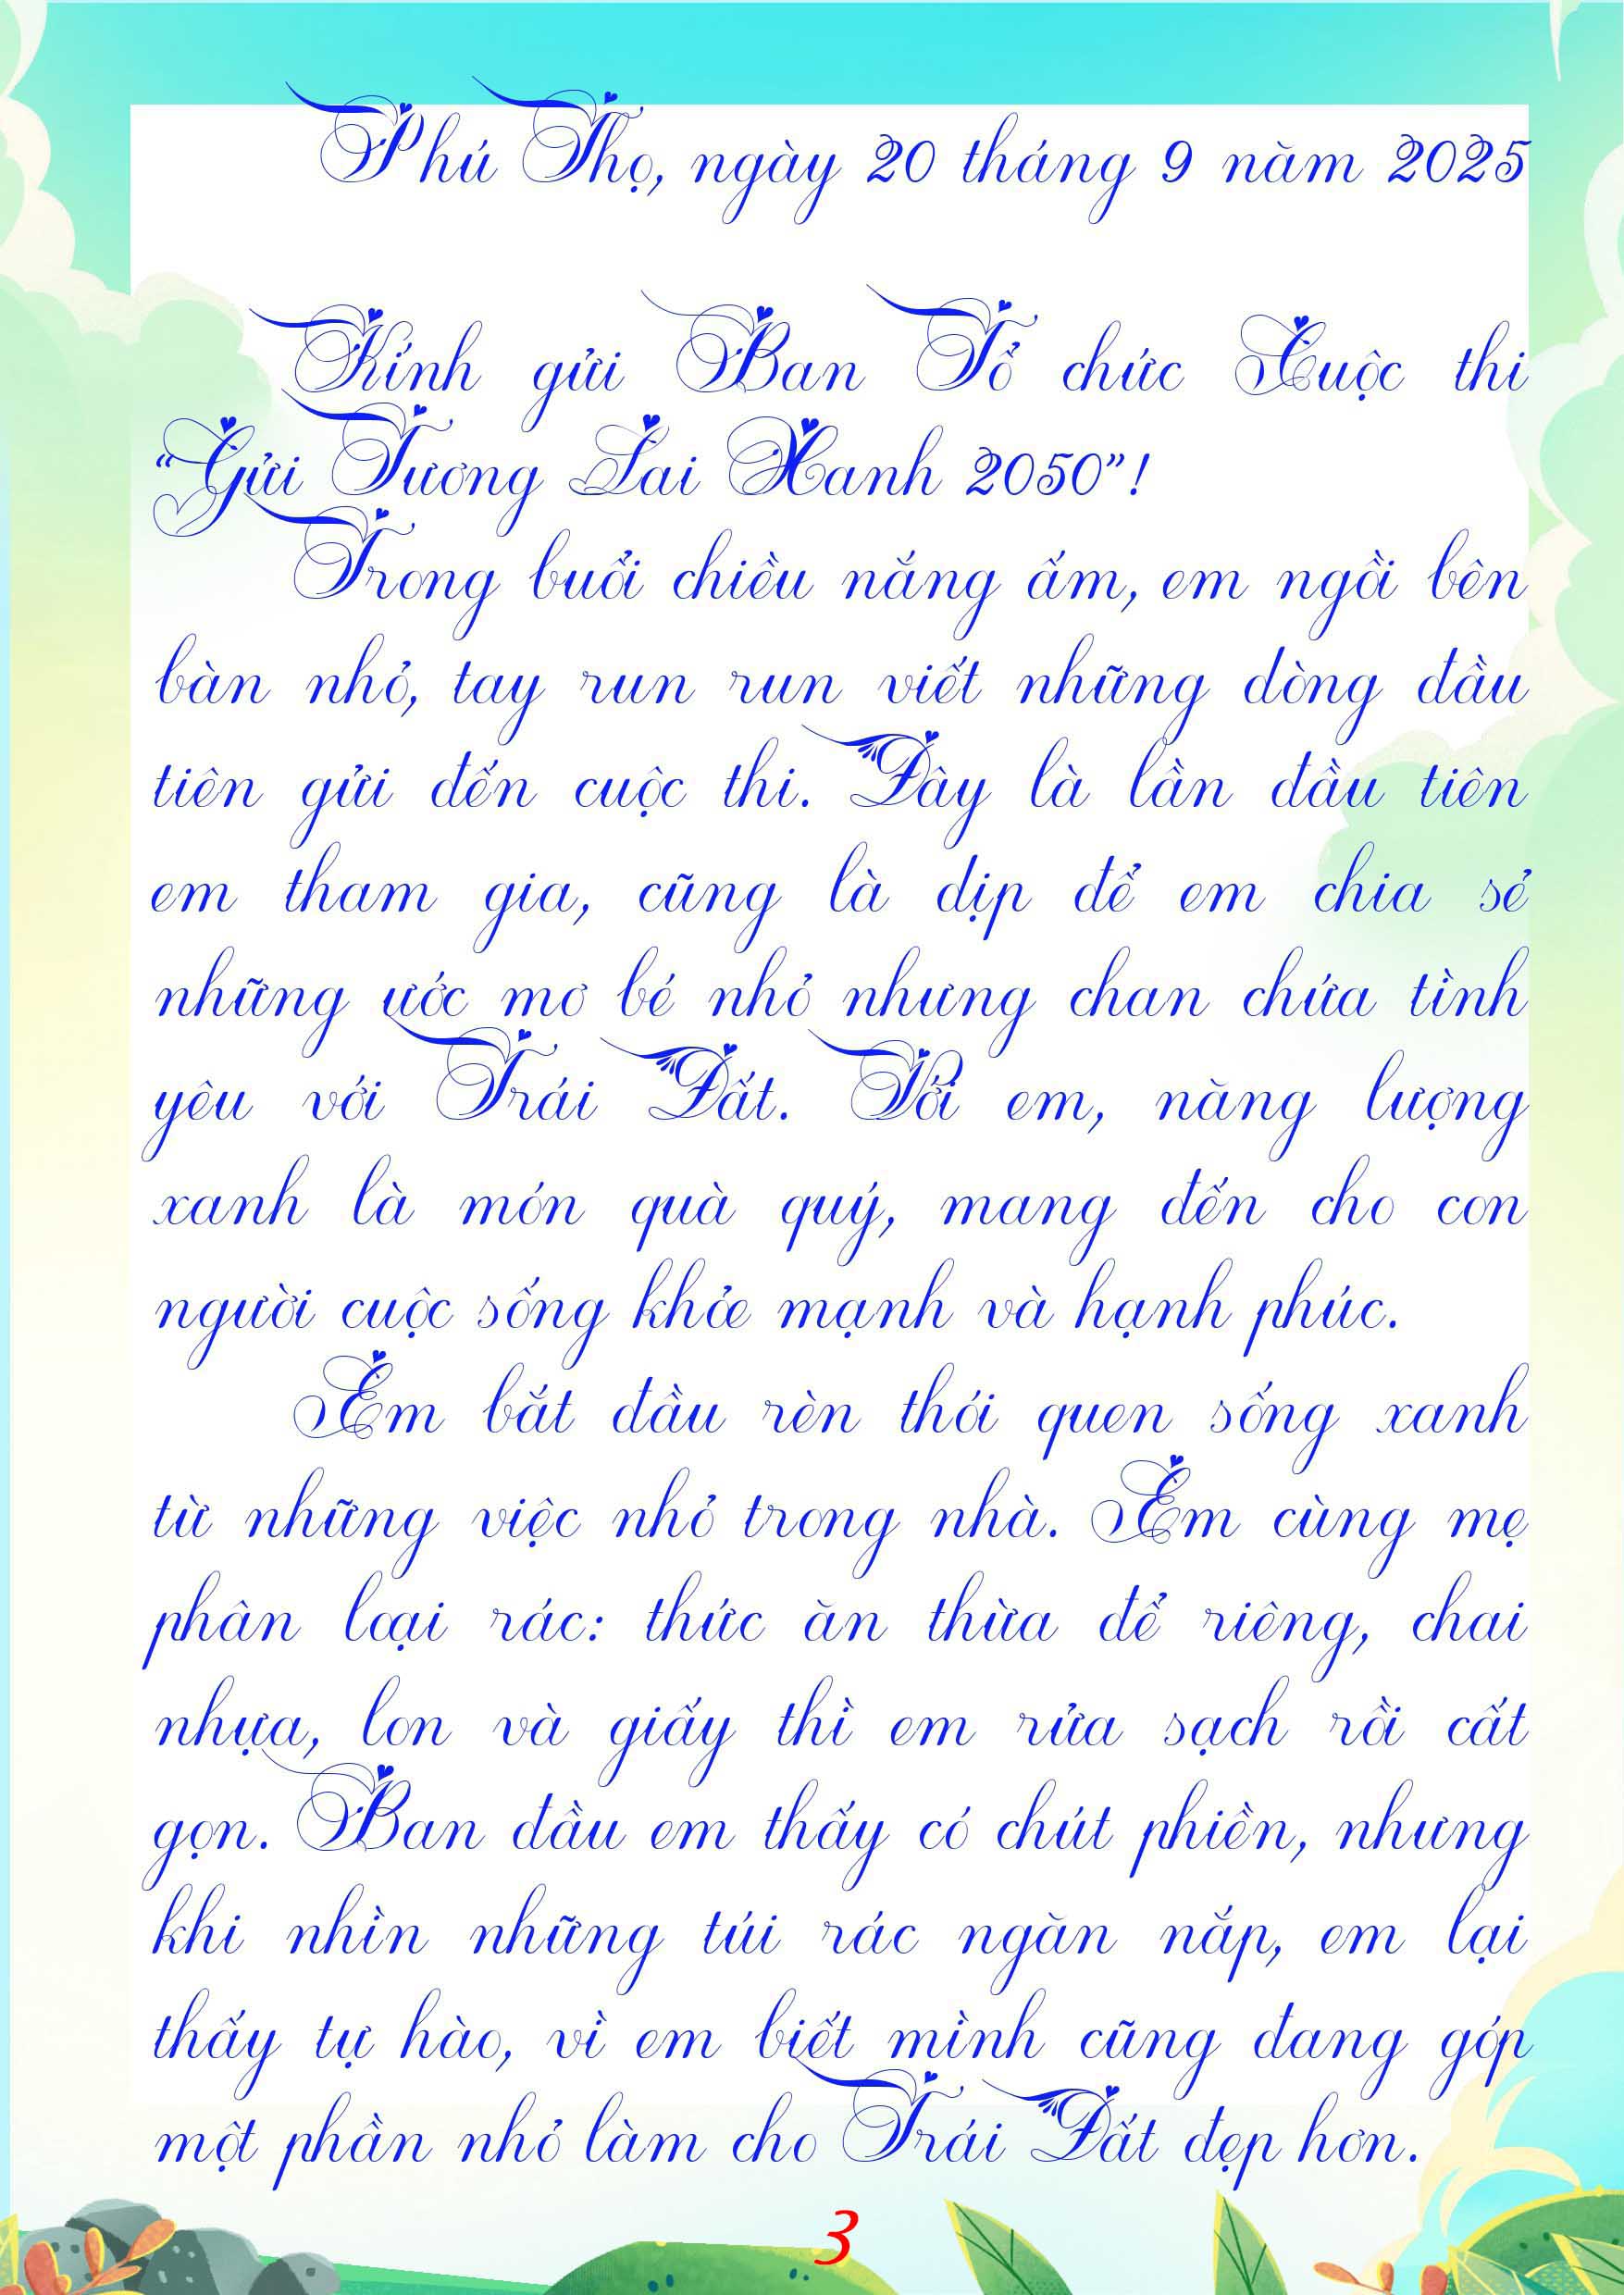 Phú Thọ, ngày 20 tháng 9 năm 2025
Kính gửi Ban Tổ chức Cuộc thi
“Gửi Tương Lai Xanh 2050”!
Trong buổi chiều nắng ấm, em ngồi bên
bàn nhỏ, tay run run viết những dòng đầu
tiên gửi đến cuộc thi. Đây là lần đầu tiên
em tham gia, cũng là dịp để em chia sẻ
những ước mơ bé nhỏ nhưng chan chứa tình
yêu với Trái Đất. Với em, năng lượng
xanh là món quà quý, mang đến cho con
người cuộc sống khỏe mạnh và hạnh phúc.
Em bắt đầu rèn thói quen sống xanh
từ những việc nhỏ trong nhà. Em cùng mẹ
phân loại rác: thức ăn thừa để riêng, chai
nhựa, lon và giấy thì em rửa sạch rồi cất
gọn. Ban đầu em thấy có chút phiền, nhưng
khi nhìn những túi rác ngăn nắp, em lại
thấy tự hào, vì em biết mình cũng đang góp
một phần nhỏ làm cho Trái Đất đẹp hơn.
3